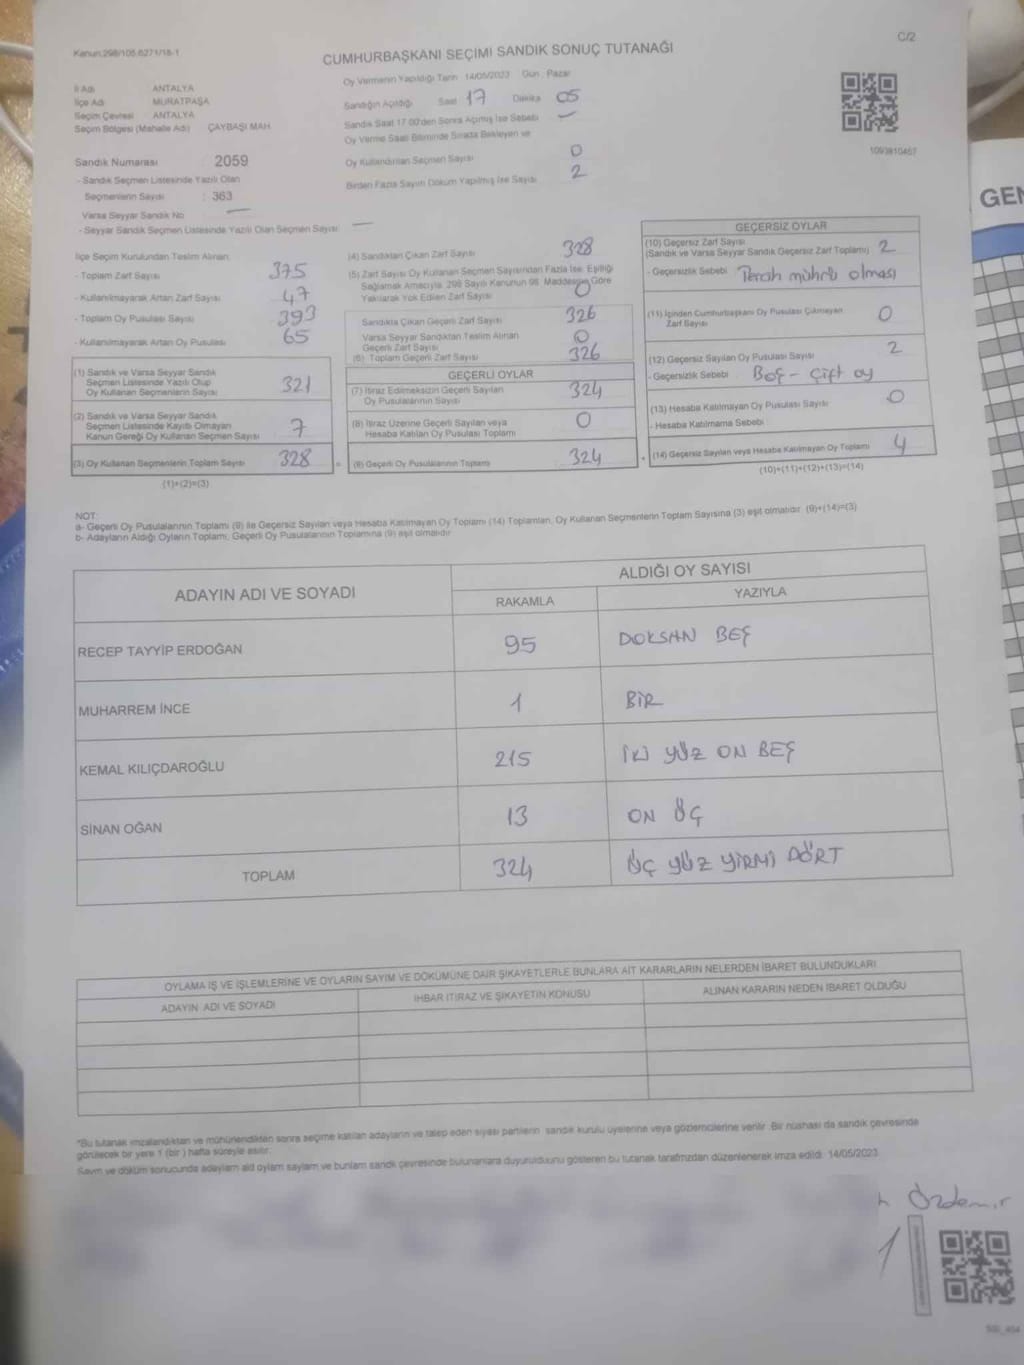 Kanun:298/105,6271/18-1
C/2
CUMHURBAŞKANI SEÇİMİ SANDIK SONUÇ TUTANAĞI
İl Adı ANTALYA
İlçe Adı MURATPAŞA
Seçim Çevresi ANTALYA
Seçim Bölgesi (Mahalle Adı) ÇAYBAŞI MAH.
Oy Vermenin Yapıldığı Tarih 14/05/2023 Gün : Pazar
Sandığın Açıldığı Saat 17 Dakika 05
Sandık Saat 17:00'den Sonra Açılmış İse Sebebi —
Oy Verme Saati Bitiminde Sırada Bekleyen ve
Oy Kullandırılan Seçmen Sayısı 0
Birden Fazla Sayım Döküm Yapılmış İse Sayısı 2
1093810467
GEN
Sandık Numarası : 2059
- Sandık Seçmen Listesinde Yazılı Olan
Seçmenlerin Sayısı : 363
Varsa Seyyar Sandık No —
- Seyyar Sandık Seçmen Listesinde Yazılı Olan Seçmen Sayısı : —
İlçe Seçim Kurulundan Teslim Alınan;
- Toplam Zarf Sayısı 375
- Kullanılmayarak Artan Zarf Sayısı 47
- Toplam Oy Pusulası Sayısı 393
- Kullanılmayarak Artan Oy Pusulası 65
(1) Sandık ve Varsa Seyyar Sandık
Seçmen Listesinde Yazılı Olup
Oy Kullanan Seçmenlerin Sayısı 321
(2) Sandık ve Varsa Seyyar Sandık
Seçmen Listesinde Kayıtlı Olmayan
Kanun Gereği Oy Kullanan Seçmen Sayısı 7
(3) Oy Kullanan Seçmenlerin Toplam Sayısı 328
(1)+(2)=(3)
(4) Sandıktan Çıkan Zarf Sayısı 328
(5) Zarf Sayısı Oy Kullanan Seçmen Sayısından Fazla İse; Eşitliği
Sağlamak Amacıyla, 298 Sayılı Kanunun 98. Maddesine Göre
Yakılarak Yok Edilen Zarf Sayısı 0
Sandıkta Çıkan Geçerli Zarf Sayısı 326
Varsa Seyyar Sandıktan Teslim Alınan
Geçerli Zarf Sayısı 0
(6) Toplam Geçerli Zarf Sayısı 326
GEÇERLİ OYLAR
(7) İtiraz Edilmeksizin Geçerli Sayılan
Oy Pusulalarının Sayısı 324
(8) İtiraz Üzerine Geçerli Sayılan veya
Hesaba Katılan Oy Pusulası Toplamı 0
= (9) Geçerli Oy Pusulalarının Toplamı 324
GEÇERSİZ OYLAR
(10) Geçersiz Zarf Sayısı
(Sandık ve Varsa Seyyar Sandık Geçersiz Zarf Toplamı) 2
- Geçersizlik Sebebi Tercih mühürlü olması
(11) İçinden Cumhurbaşkanı Oy Pusulası Çıkmayan
Zarf Sayısı 0
(12) Geçersiz Sayılan Oy Pusulası Sayısı 2
- Geçersizlik Sebebi Boş - Çift oy
(13) Hesaba Katılmayan Oy Pusulası Sayısı 0
- Hesaba Katılmama Sebebi :
+ (14) Geçersiz Sayılan veya Hesaba Katılmayan Oy Toplamı 4
(10)+(11)+(12)+(13)=(14)
NOT:
a- Geçerli Oy Pusulalarının Toplamı (9) ile Geçersiz Sayılan veya Hesaba Katılmayan Oy Toplamı (14) Toplamları, Oy Kullanan Seçmenlerin Toplam Sayısına (3) eşit olmalıdır. (9)+(14)=(3)
b- Adayların Aldığı Oyların Toplamı, Geçerli Oy Pusulalarının Toplamına (9) eşit olmalıdır.
ADAYIN ADI VE SOYADI
ALDIĞI OY SAYISI
RAKAMLA YAZIYLA
RECEP TAYYİP ERDOĞAN 95 DOKSAN BEŞ
MUHARREM İNCE 1 BİR
KEMAL KILIÇDAROĞLU 215 İKİ YÜZ ON BEŞ
SİNAN OĞAN 13 ON ÜÇ
TOPLAM 324 ÜÇ YÜZ YİRMİ DÖRT
OYLAMA İŞ VE İŞLEMLERİNE VE OYLARIN SAYIM VE DÖKÜMÜNE DAİR ŞİKAYETLERLE BUNLARA AİT KARARLARIN NELERDEN İBARET BULUNDUKLARI
ADAYIN ADI VE SOYADI İHBAR İTİRAZ VE ŞİKAYETİN KONUSU ALINAN KARARIN NEDEN İBARET OLDUĞU
*Bu tutanak imzalandıktan ve mühürlendikten sonra seçime katılan adayların ve talep eden siyasi partilerin sandık kurulu üyelerine veya gözlemcilerine verilir. Bir nüshası da sandık çevresinde
görülecek bir yere 1 (bir) hafta süreyle asılır.
Sayım ve döküm sonucunda adayların aldı oyların sayılarını ve bunların sandık çevresinde bulunanlara duyurulduunu gösteren bu tutanak tarafımızdan düzenlenerek imza edildi. 14/05/2023
Özdemir